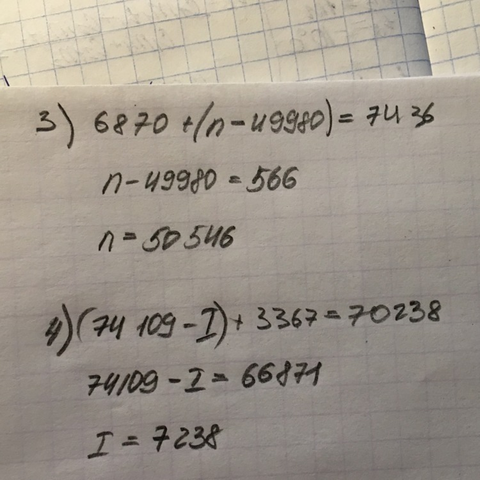 3) 6870 + (n - 49980) = 7436
n - 49980 = 566
n = 50546
4) (74 109 - I) + 3367 = 70238
74109 - I = 66871
I = 7238